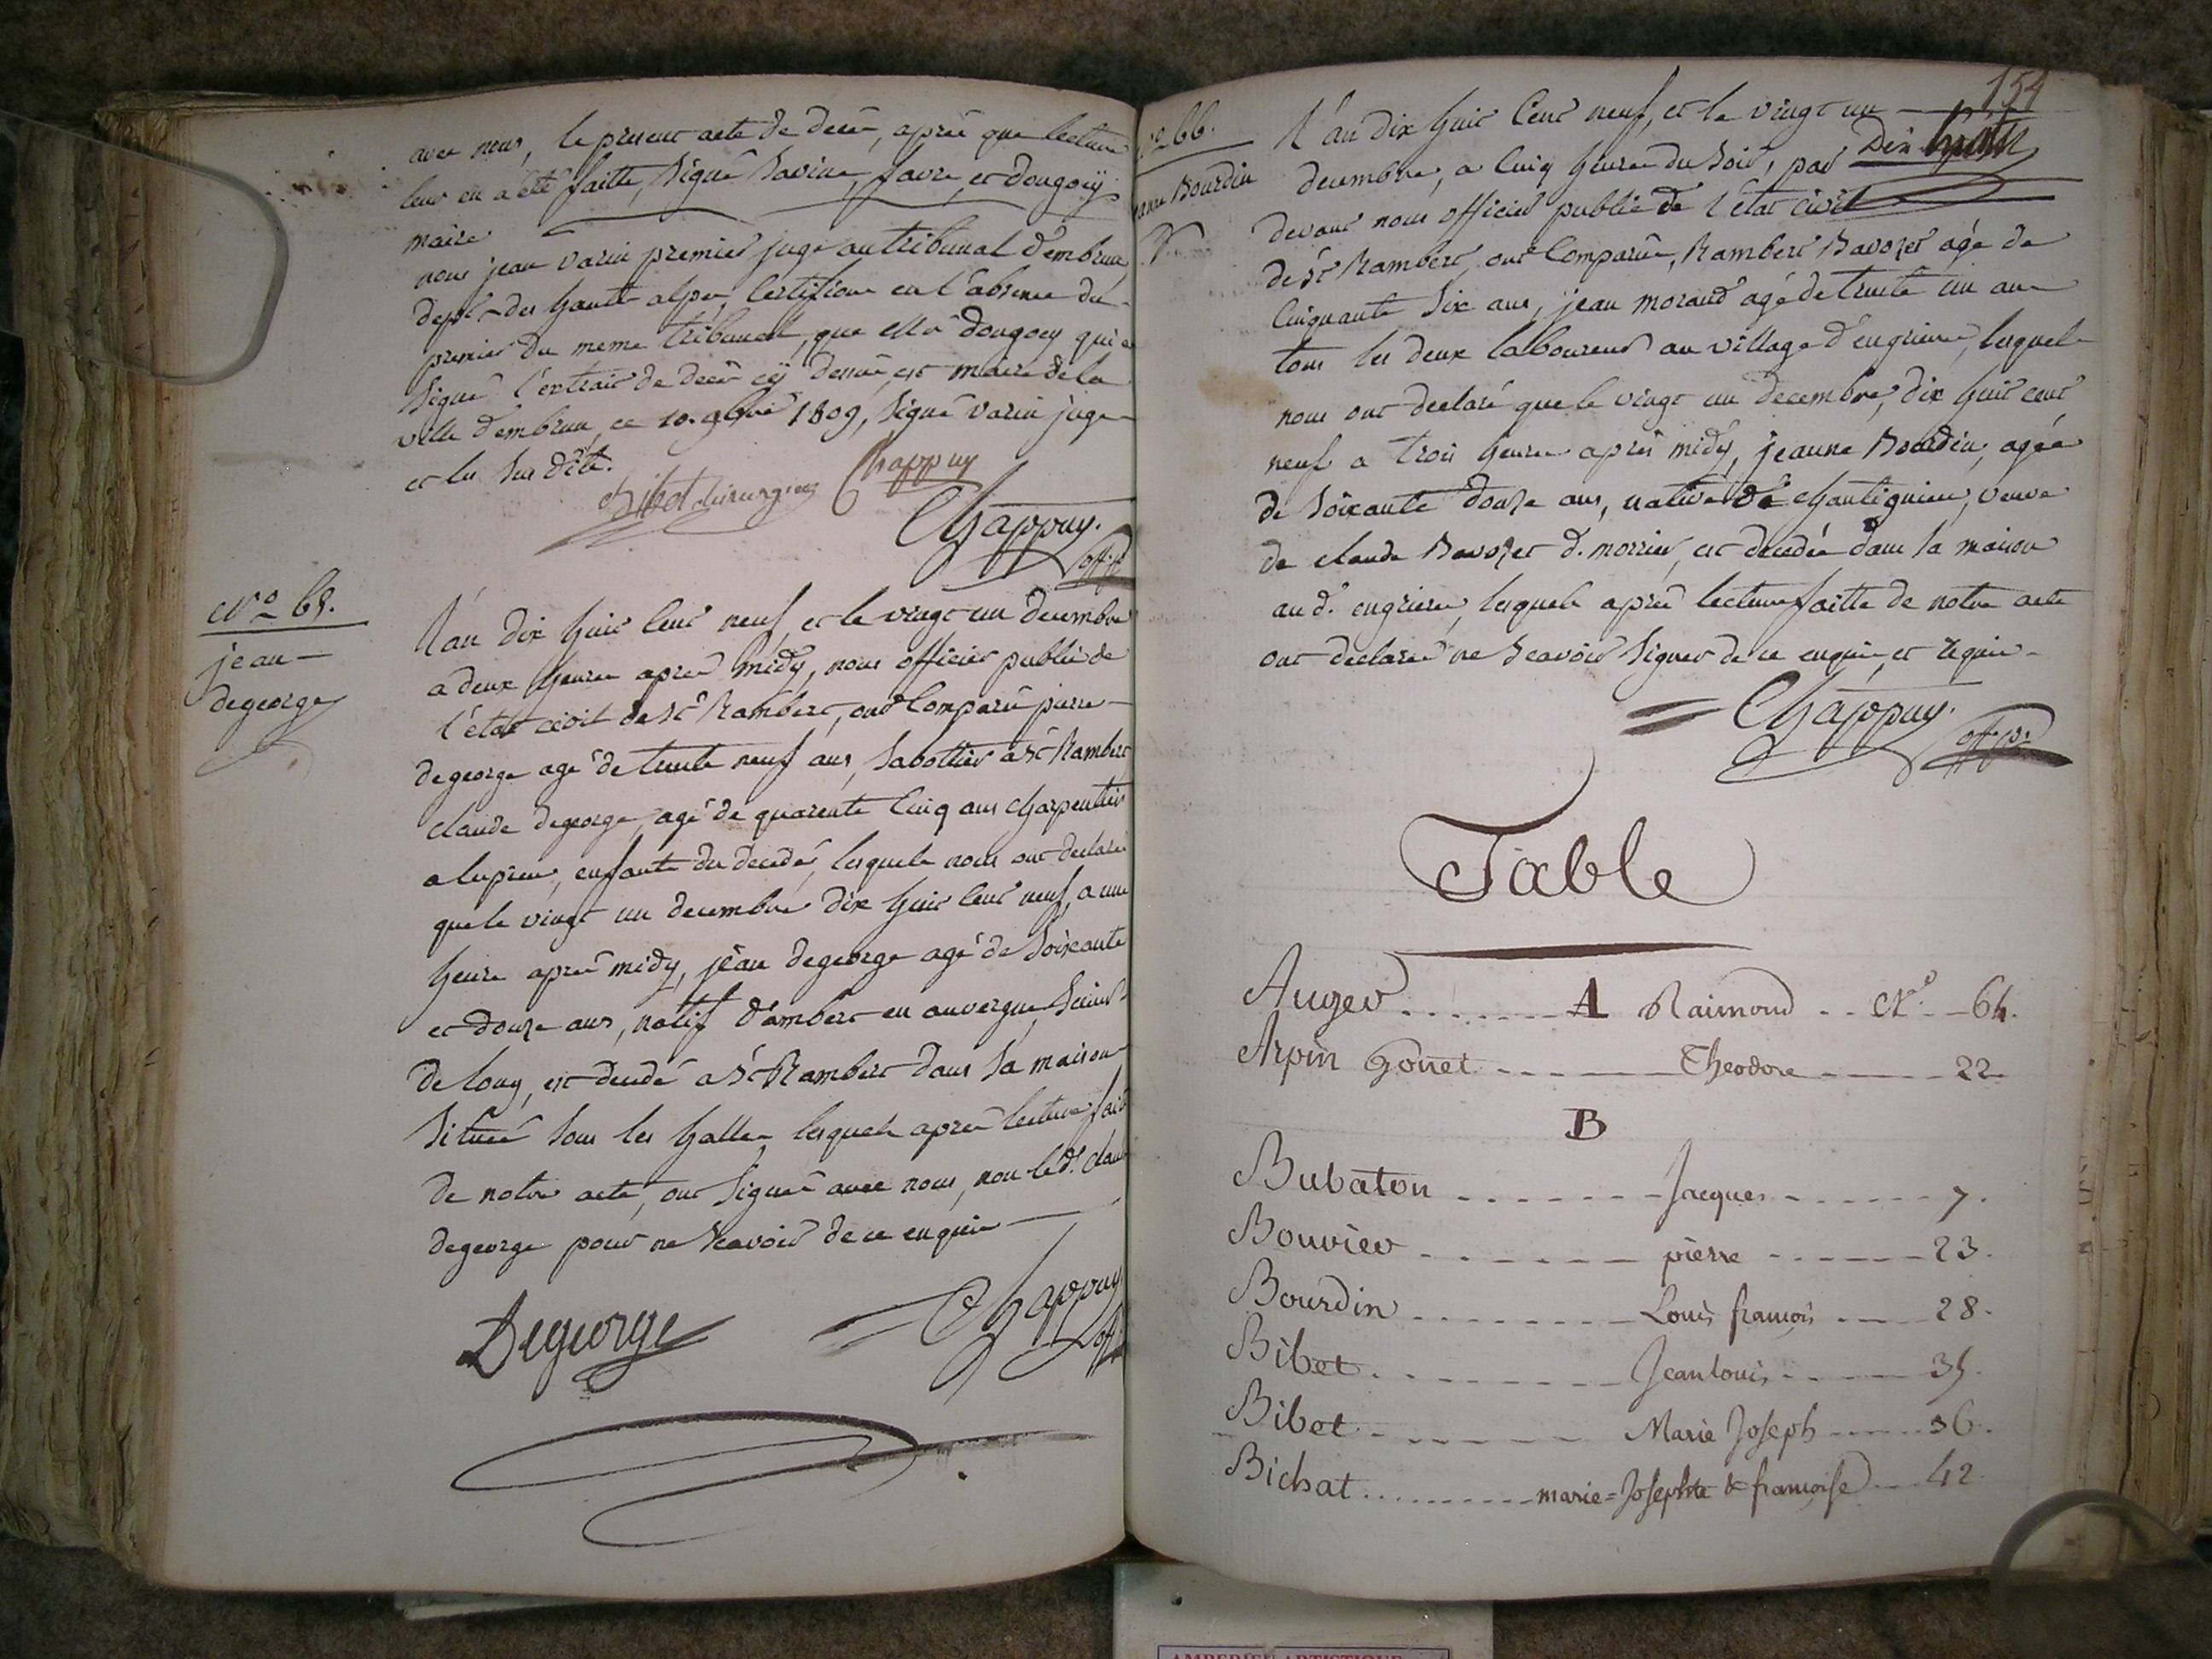 avec nous, le present acte de decès, aprés que lecture
leur en a été faitte, Signé Savine, favre, et dongoiÿ
maire
nous jean varin premier juge au tribunal d'embrun
dept. des hautes alpes, Certifions en l'absence du
premier du meme tribunal, que Mr dongoey qui a
signé l'extrait de decès cÿ dessus est maire de la
ville d'embrun, ce 10. 9bre 1809, signé varin juge
et les sus dits.
Bibet chirurgien Chappuy
Chappuy.
off. p.
No 65.
jean
degeorge
L'an dix huit Cent neuf, et le vingt un decembre
a deux heures aprés midÿ, nous officier public de
l'état civil de St Rambert, ont Comparû pierre
degeorge agé de trente neuf ans, Sabottier a St Rambert
claude degeorge, agé de quarente Cinq ans charpentier
a lupieu, enfants du decedé, lesquels nous ont declaré
que le vingt un decembre dix huit Cent neuf, a une
heure aprés midÿ, jean degeorge agé de Soixante
et douze ans, natif d'ambert en auvergne,
de long, est decedé a St Rambert dans sa maison
Située sous les halles lesquels aprés lecture fait
de notre acte, ont signés avec nous, non led. claude
degeorge pour ne Scavoir de ce enquis
Degeorge Chappuy
off.
154
Dix huit
No 66.
Bourdin
L'an dix huit Cent neuf, et le vingt un
decembre, a Cinq heures du soir, par
devant nous officier public de l'état civil
de St Rambert, ont Comparûs, Rambert Bavozet agé de
Cinquante Six ans, jean morand agé de trente un ans
tous les deux laboureurs au village d'engrieres, lesquels
nous ont declaré que le vingt un decembre, dix huit cent
neuf a trois heures aprés midÿ, jeanne Bourdin, agée
de soixante douze ans, native de chantignieu, veuve
de claude Bavozet d. morrier, est decedée dans sa maison
aud. engrieres, lesquels aprés lecture faitte de notre acte
ont declarés ne Scavoir signer de ce enquis et requis
Chappuy.
off. p.
Table
A
Auger Raimond No. 64.
Arpin Gonet Theodore 22
B
Bubaton Jacques 7.
Bouvier pierre 23.
Bourdin Louis françois 28.
Bibet Jean louis 35.
Bibet Marie Joseph 36.
Bichat marie=Josephte & françoise 42